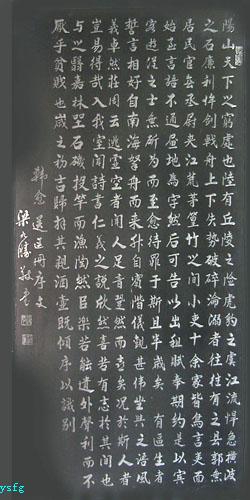 陽山天下之窮處也陸有丘陵之險虎豹之虞江流悍急橫波
之石廉利侔劍戟舟上下失勢破碎淪溺者往往有之縣郭無
居民官無丞尉夾江荒茅篁竹之間小吏十餘家皆鳥言夷面
始至言語不通畫地為字然後可告以出租賦奉期約是以賓
客遊從之士無所為而至愈待罪于斯且半歲矣有區生者
誓言相好自南海挐舟而來升自賓階儀觀甚偉坐與之語文
義卓然莊周云逃空虛者聞人足音跫然而喜矣況於斯人者
豈易得哉入我室聞詩書仁義之說欣然喜若有志於其間也
與之翳嘉林坐石磯投竿而漁陶然以樂若能遺外聲利而不
厭乎貧賤也歲之初吉歸拜其親酒壺既傾序以識別
韓愈 送區冊序文
梁 敬書
ysfg